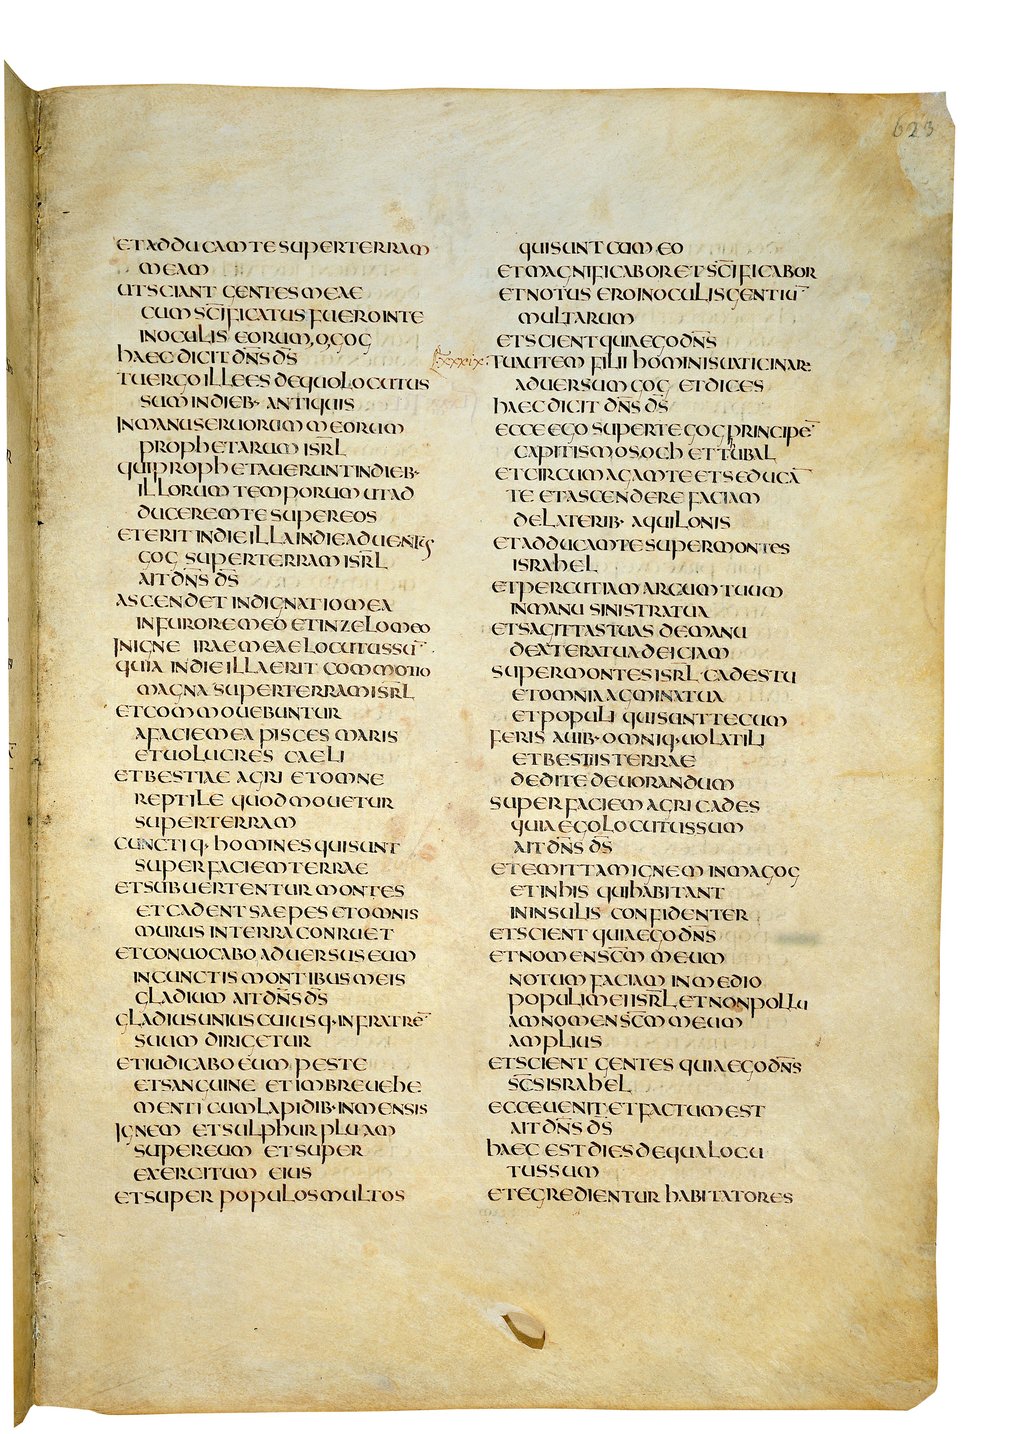 623
ETADDUCAMTESUPERTERRAM
MEAM
UTSCIANT GENTESMEAE
CUMSC̅IFICATUS FUEROINTE
INOCULIS EORUM,O,GOG
HAECDICIT DN̅S DS̅
TUERGOILLEES DEQUOLOCUTUS
SUMINDIEB· ANTIQUIS
INMANUSERUORUMMEORUM
PROPHETARUM ISR̅L
QUIPROPHETAUERUNTINDIEB·
ILLORUMTEMPORUMUTAD
DUCEREMTESUPEREOS
ETERITINDIEILLAINDIEADUENTUS
GOG SUPERTERRAMISR̅L
AITDN̅S DS̅
ASCENDET INDIGNATIOMEA
INFUROREMEOETINZELOMEO
INIGNE IRAEMEAELOCUTUSSU̅·
QUIA INDIEILLAERIT COMMOTIO
MAGNASUPERTERRAMISR̅L
ETCOMMOUEBUNTUR
AFACIEMEAPISCES MARIS
ETUOLUCRES CAELI
ETBESTIAE AGRI ETOMNE
REPTILE QUODMOUETUR
SUPERTERRAM
CUNCTIQ· HOMINESQUISUNT
SUPERFACIEMTERRAE
ETSUBUERTENTURMONTES
ETCADENTSAEPESETOMNIS
MURUS INTERRACONRUET
ETCONUOCABOADUERSUSEUM
INCUNCTISMONTIBUSMEIS
GLADIUM AITDN̅SDS̅
GLADIUSUNIUSCUIUSQ·INFRATRE̅
SUUM DIRIGETUR
ETIUDICABOEUM PESTE
ETSANGUINE ETIMBREUEHE
MENTICUMLAPIDIB·INMENSIS
IGNEM ETSULPHURPLUAM
SUPEREUM ETSUPER
EXERCITUM EIUS
ETSUPER POPULOSMULTOS
QUISUNTCUMEO
ETMAGNIFICABORETSC̅IFICABOR
ETNOTUS EROINOCULISGENTIU̅
MULTARUM
ETSCIENTQUIAEGODN̅S
LXXXIX:TUAUTEM FILII HOMINISUATICINAR:
ADUERSUMGOG ETDICES
HAECDICIT DN̅SDS̅
ECCEEGOSUPERTEGOGPRINCIPE̅
CAPITISMOSOCH ETTUBAL
ETCIRCUMAGAMTEETSEDUCA̅
TE ETASCENDERE FACIAM
DELATERIB· AQUILONIS
ETADDUCAMTESUPERMONTES
ISRAHEL
ETPERCUTIAMARCUMTUUM
INMANU SINISTRATUA
ETSAGITTASTUAS DEMANU
DEXTERATUADEICIAM
SUPERMONTESISR̅L·CADESTU
ETOMNIAAGMINATUA
ETPOPULI QUISUNTTECUM
FERIS AUIB·OMNIQ·UOLATILI
ETBESTIISTERRAE
DEDITEDEUORANDUM
SUPERFACIEMAGRICADES
QUIAEGOLOCUTUSSUM
AITDN̅S DS̅
ETEMITTAMIGNEM INMAGOG
ETINHIS QUIHABITANT
ININSULIS CONFIDENTER
ETSCIENT QUIAEGODN̅S
ETNOMENSC̅M MEUM
NOTUM FACIAM INMEDIO
POPULIMEIISR̅L,ETNONPOLLU
AMNOMENSC̅MMEUM
AMPLIUS
ETSCIENT GENTES QUIAEGODN̅S
SC̅SISRAHEL
ECCEUENIT,ETFACTUMEST
AITDN̅S DS̅
HAEC ESTDIESDEQUALOCU
TUSSUM
ETEGREDIENTUR HABITATORES